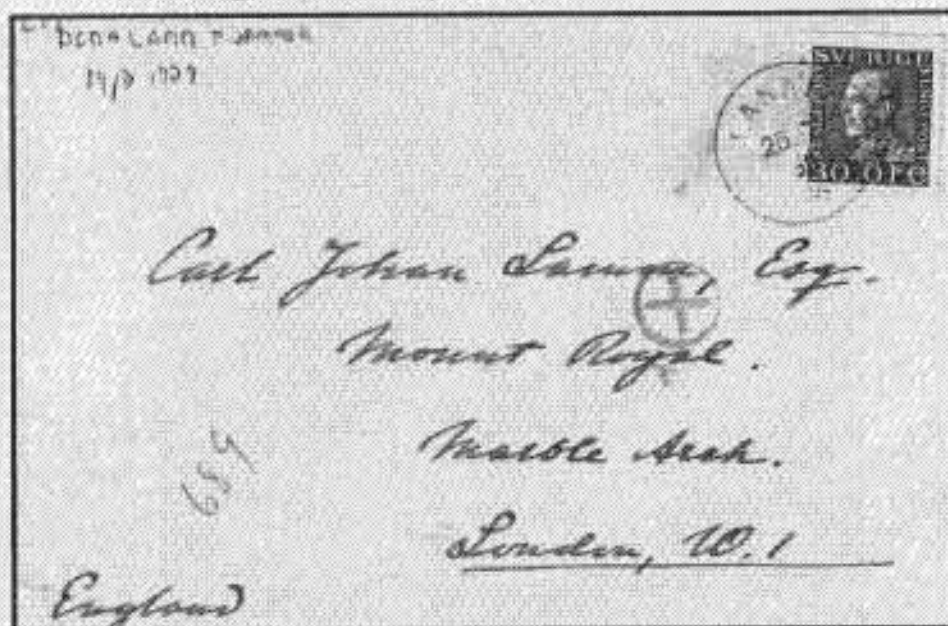 SVERIGE
20
30 ÖRE
Carl Johan Lamm, Esq.
Mount Royal.
Marble Arch.
London, W.1
England